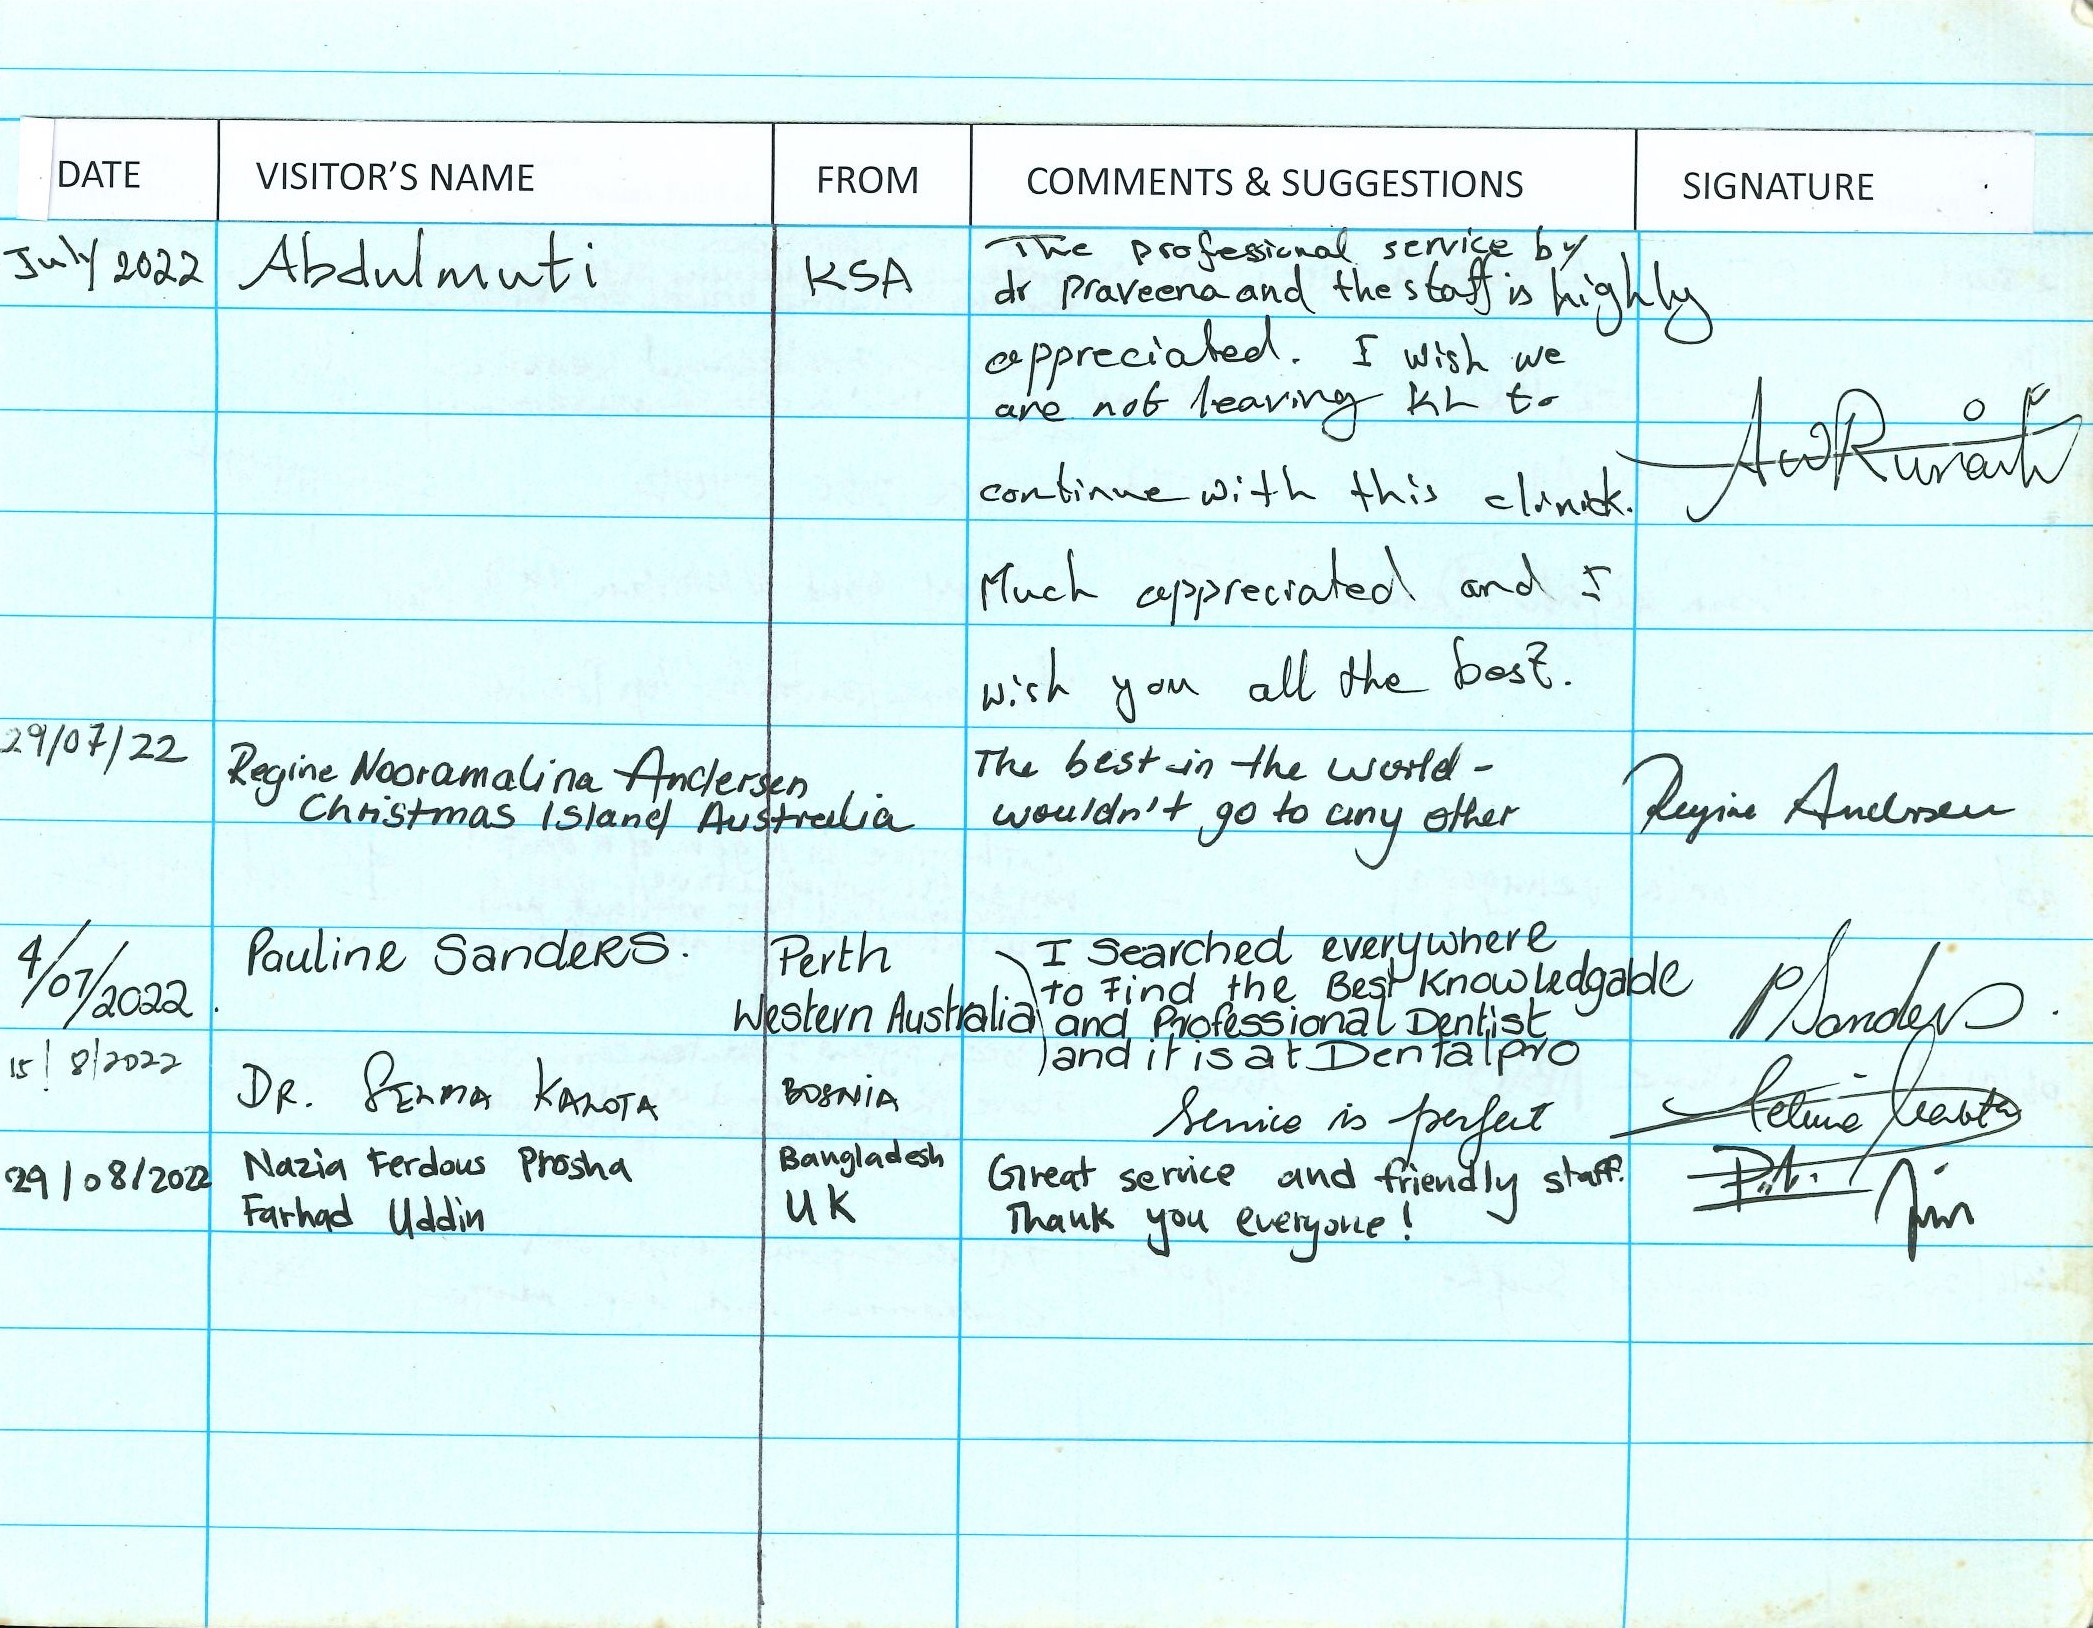 DATE VISITOR'S NAME FROM COMMENTS & SUGGESTIONS SIGNATURE
July 2022 Abdulmuti KSA The professional service by
dr praveena and the staff is highly
appreciated. I wish we
are not leaving KL to
continue with this clinick.
Much appreciated and I
wish you all the best.
29/07/22 Regine Nooramalina Andersen The best in the world -
Christmas Island Australia wouldn't go to any other Regine Andersen
4/07/2022. Pauline Sanders. Perth I Searched everywhere
to Find the Best Knowledgable
Western Australia and Professional Dentist PSanders.
and it is at Dentalpro
15/8/2022 DR. SELMA BOSNIA Service is perfect
29/08/2022 Nazia Ferdous Prosha Bangladesh Great service and friendly staff.
Farhad Uddin UK Thank you everyone!